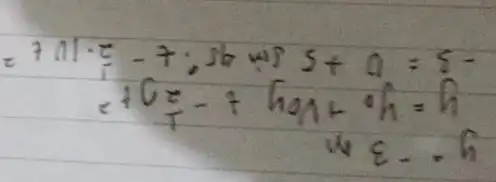 y = -3 m
y = y₀ + v₀y t - 1/2 g t²
-3 = 0 + 5 sin 45° · t - 1/2 · 10 t²